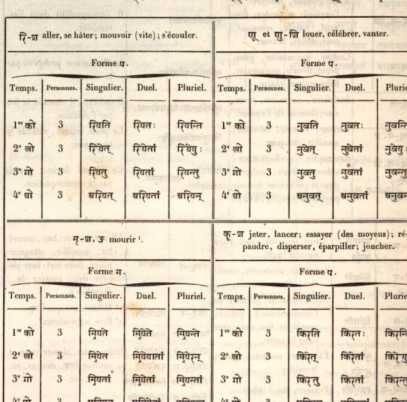 रि-श aller, se hâter; mouvoir (vite); s'écouler. णू et णु-शि louer, célébrer, vanter.
Forme प. Forme प.
Temps. Personnes. Singulier. Duel. Pluriel. Temps. Personnes. Singulier. Duel. Plurie
1er को 3 रियति रियतः रियन्ति 1er को 3 नुवति नुवतः
2e खो 3 रियेत् रियेतां रियेयुः 2e खो 3 नुवेत् नुवेतां
3e गो 3 रियतु रियतां रियन्तु 3e गो 3 नुवतु नुवतां
4e घो 3 अरियत् अरियतां अरियन् 4e घो 3 अनुवत् अनुवतां
मृ-श, ङ mourir¹. कॄ-श jeter, lancer; essayer (des moyens); ré-
pandre, disperser, éparpiller; joucher.
Forme म. Forme प.
Temps. Personnes. Singulier. Duel. Pluriel. Temps. Personnes. Singulier. Duel. Plurie
1er को 3 म्रियते म्रियेते म्रियन्ते 1er को 3 किरति किरतः
2e खो 3 म्रियेत म्रियेयातां म्रियेरन् 2e खो 3 किरेत् किरेतां
3e गो 3 म्रियतां म्रियेतां म्रियन्तां 3e गो 3 किरतु किरतां